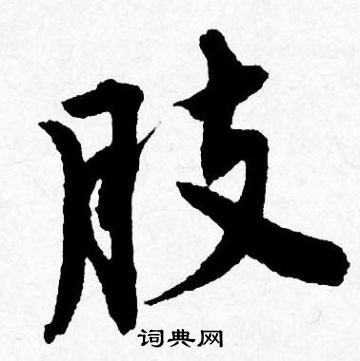 肢
词典网